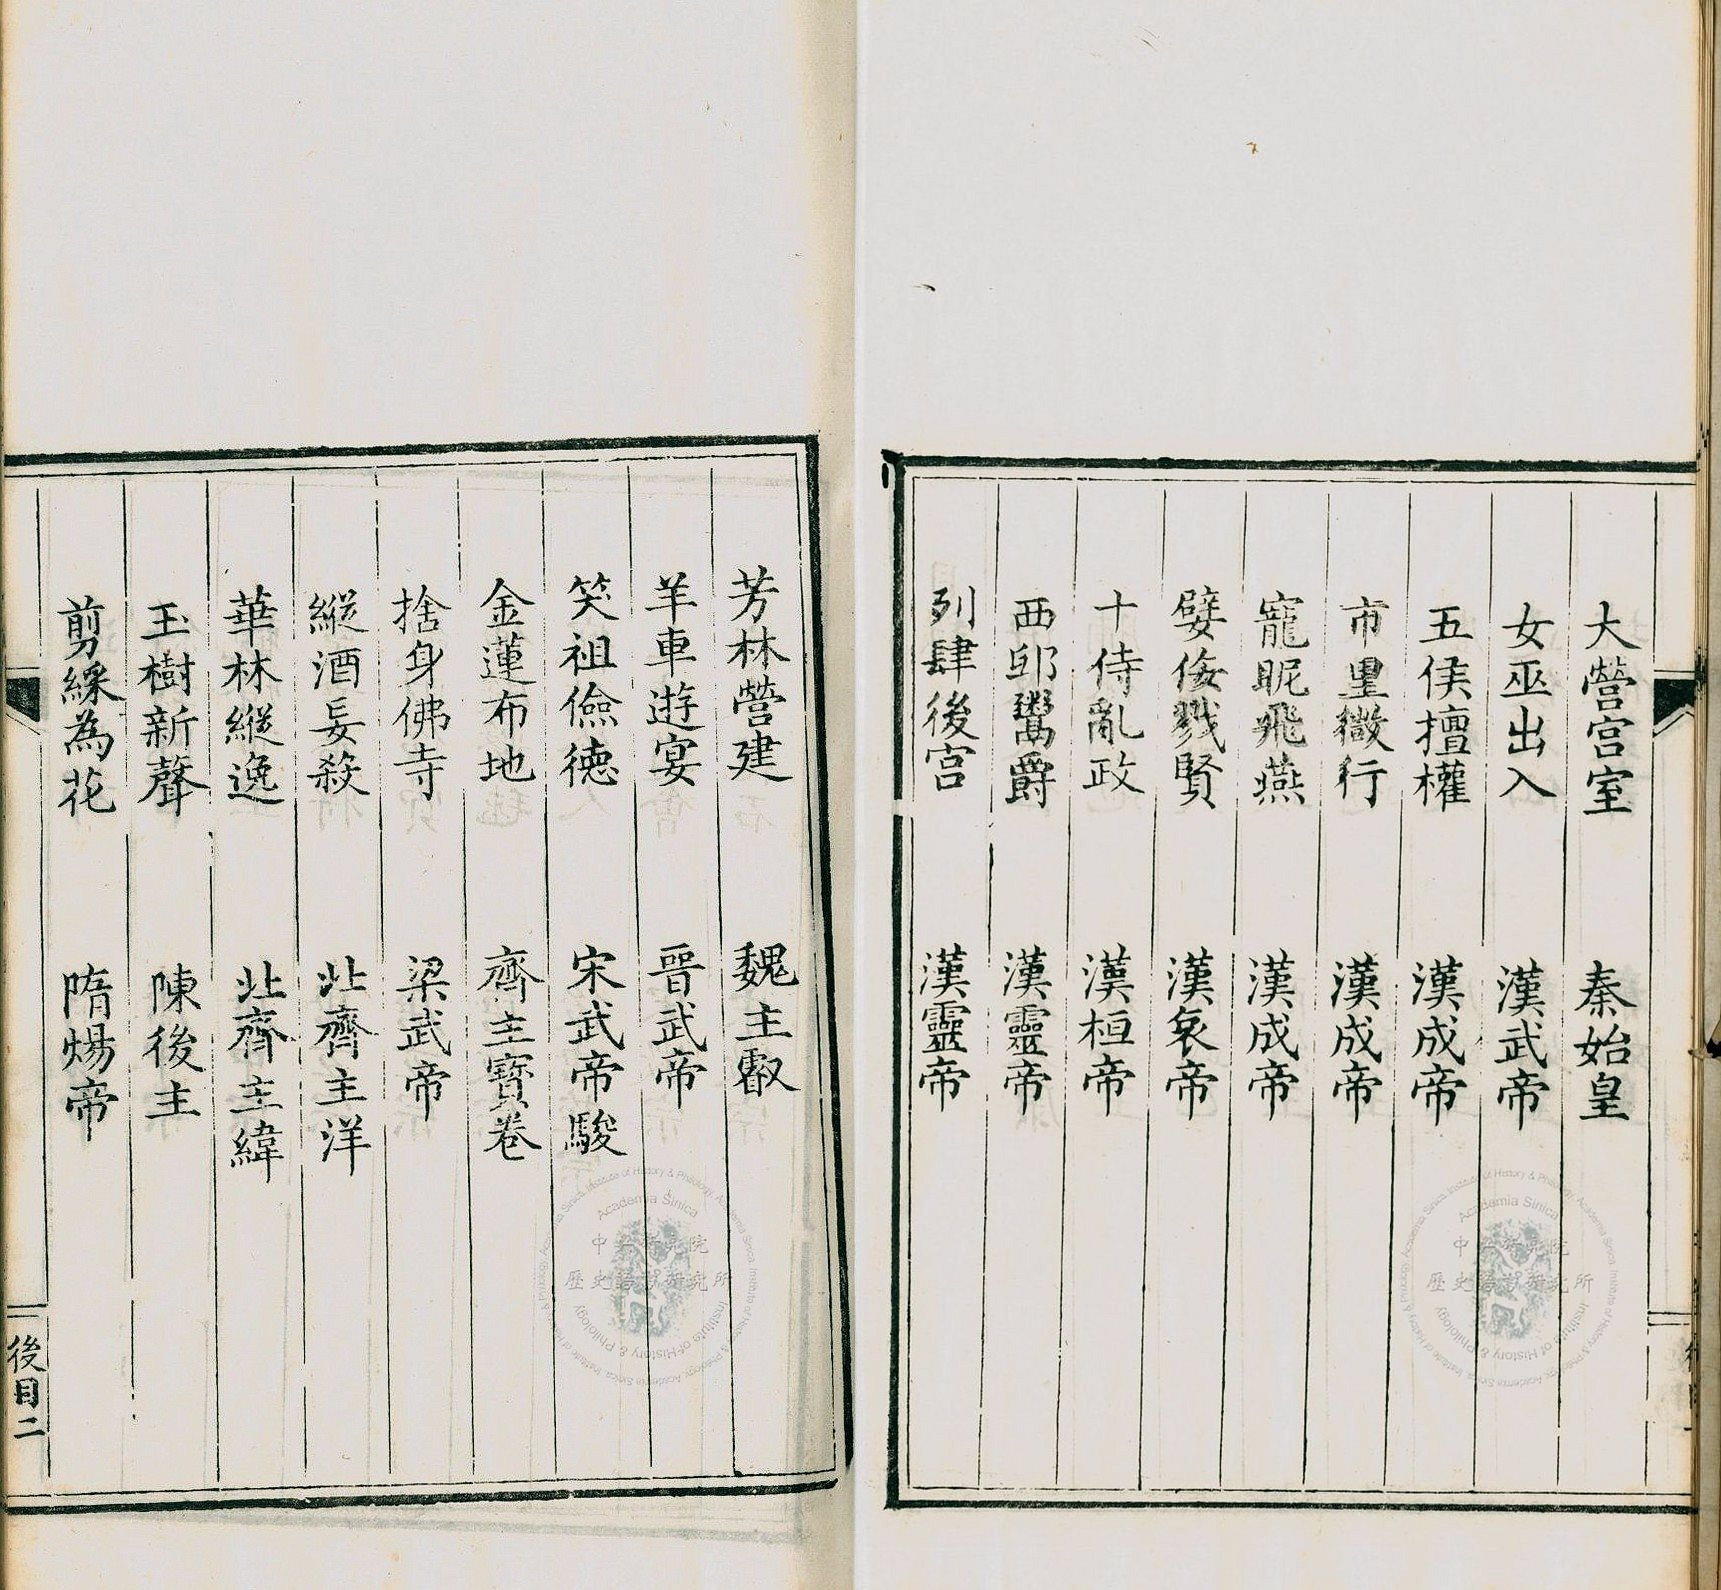 大營宮室　秦始皇
女巫出入　漢武帝
五侯擅權　漢成帝
市里微行　漢成帝
寵昵飛燕　漢成帝
嬖佞戮賢　漢哀帝
十侍亂政　漢桓帝
西邸鬻爵　漢靈帝
列肆後宮　漢靈帝
芳林營建　魏主叡
羊車遊宴　晉武帝
笑祖儉德　宋武帝駿
金蓮布地　齊主寶卷
捨身佛寺　梁武帝
縱酒妄殺　北齊主洋
華林縱逸　北齊主緯
玉樹新聲　陳後主
剪綵為花　隋煬帝
後目二
中央研究院
歷史語言研究所
Academia Sinica
Institute of History & Philology
中央研究院
歷史語言研究所
Academia Sinica
Institute of History & Philology